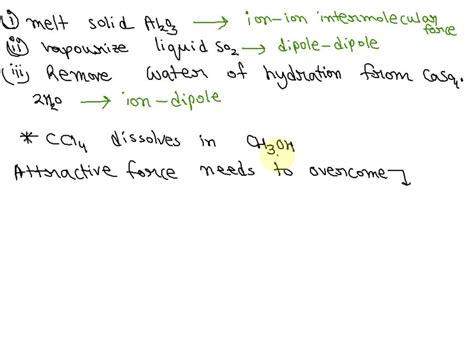 (i) melt solid Al2O3 → ion-ion intermolecular force
(ii) vapourize liquid SO2 → dipole-dipole
(iii) Remove water of hydration from CaSO4.
2H2O → ion-dipole
* CCl4 dissolves in CH3OH
Attractive force needs to overcome ↴